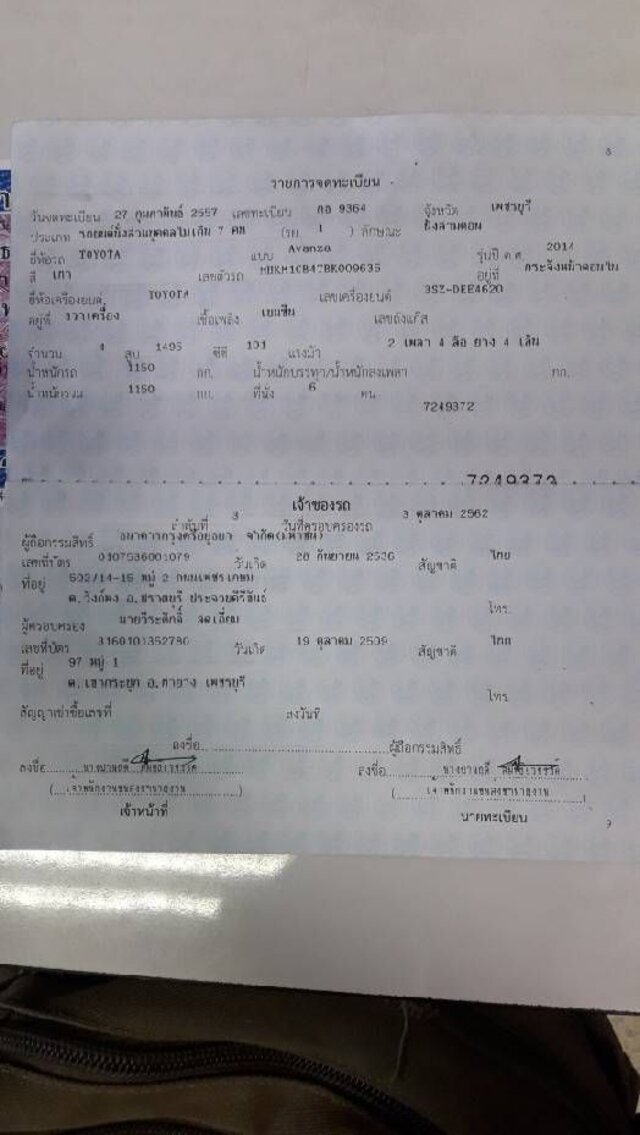 8
รายการจดทะเบียน
วันจดทะเบียน 27 กุมภาพันธ์ 2557 เลขทะเบียน กอ 9364 จังหวัด เพชรบุรี
ประเภท รถยนต์นั่งส่วนบุคคลไม่เกิน 7 คน (รย. 1 ) ลักษณะ นั่งสามตอน
ยี่ห้อรถ TOYOTA แบบ Avanza รุ่นปี ค.ศ. 2014
สี เทา เลขตัวรถ อยู่ที่
ยี่ห้อเครื่องยนต์ TOYOTA เลขเครื่องยนต์ 3SZ-DEE4620
อยู่ที่ เชื้อเพลิง เบนซิน เลขถังแก๊ส
จำนวน 4 สูบ 1495 ซีซี 101 แรงม้า 2 เพลา 4 ล้อ ยาง 4 เส้น
น้ำหนักรถ 1150 กก. น้ำหนักบรรทุก/น้ำหนักลงเพลา กก.
น้ำหนักรวม 1150 กก. ที่นั่ง 6 คน
7249372
7249373
เจ้าของรถ
ลำดับที่ 3 วันที่ครอบครองรถ 3 ตุลาคม 2562
ผู้ถือกรรมสิทธิ์ ธนาคารกรุงศรีอยุธยา จำกัด(มหาชน)
เลขที่บัตร 0107536001079 วันเกิด 28 กันยายน 2536 สัญชาติ ไทย
ที่อยู่ 502/14-15 หมู่ 2 ถนนเพชรเกษม
ต. วังก์พง อ. ปราณบุรี ประจวบคีรีขันธ์ โทร.
ผู้ครอบครอง
เลขที่บัตร 3160101352780 วันเกิด 19 ตุลาคม 2509 สัญชาติ ไทย
ที่อยู่ 97 หมู่ 1
ต. เขากระปุก อ. ท่ายาง เพชรบุรี โทร.
สัญญาเช่าซื้อเลขที่ ลงวันที่
ลงชื่อ ผู้ถือกรรมสิทธิ์
ลงชื่อ ลงชื่อ
( เจ้าพนักงานขนส่งชำนาญงาน ) ( เจ้าพนักงานขนส่งชำนาญงาน )
เจ้าหน้าที่ นายทะเบียน
9